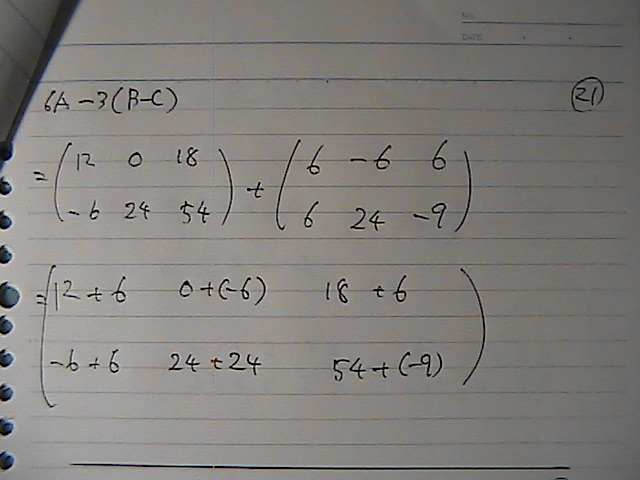 NO.
DATE
6A-3(B-C) (21)
= ( 12 0 18 ) + ( 6 -6 6 )
-6 24 54 6 24 -9
= ( 12+6 0+(-6) 18+6 )
-6+6 24+24 54+(-9)